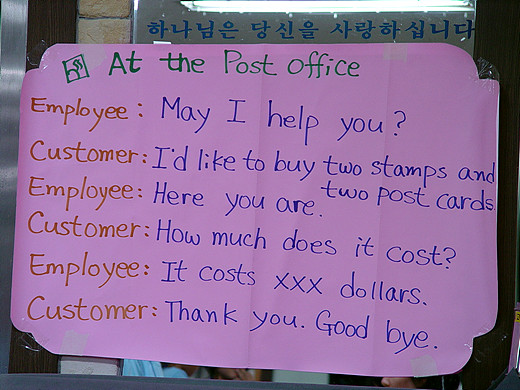 하나님은 당신을 사랑하십니다
At the Post Office
Employee: May I help you?
Customer: I'd like to buy two stamps and
two post cards.
Employee: Here you are.
Customer: How much does it cost?
Employee: It costs xxx dollars.
Customer: Thank you. Good bye.